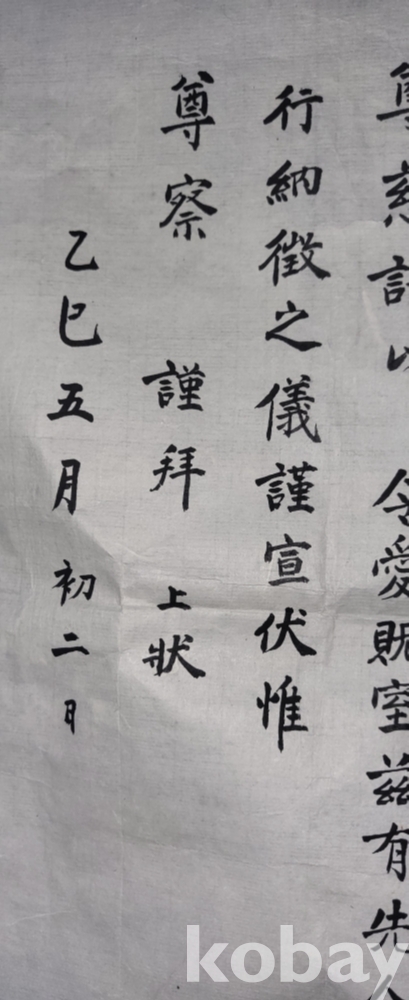 尊慈許以 令愛貺室茲有先人
行納徵之儀謹宣伏惟
尊察 謹拜 上狀
乙巳五月初二日
kobay